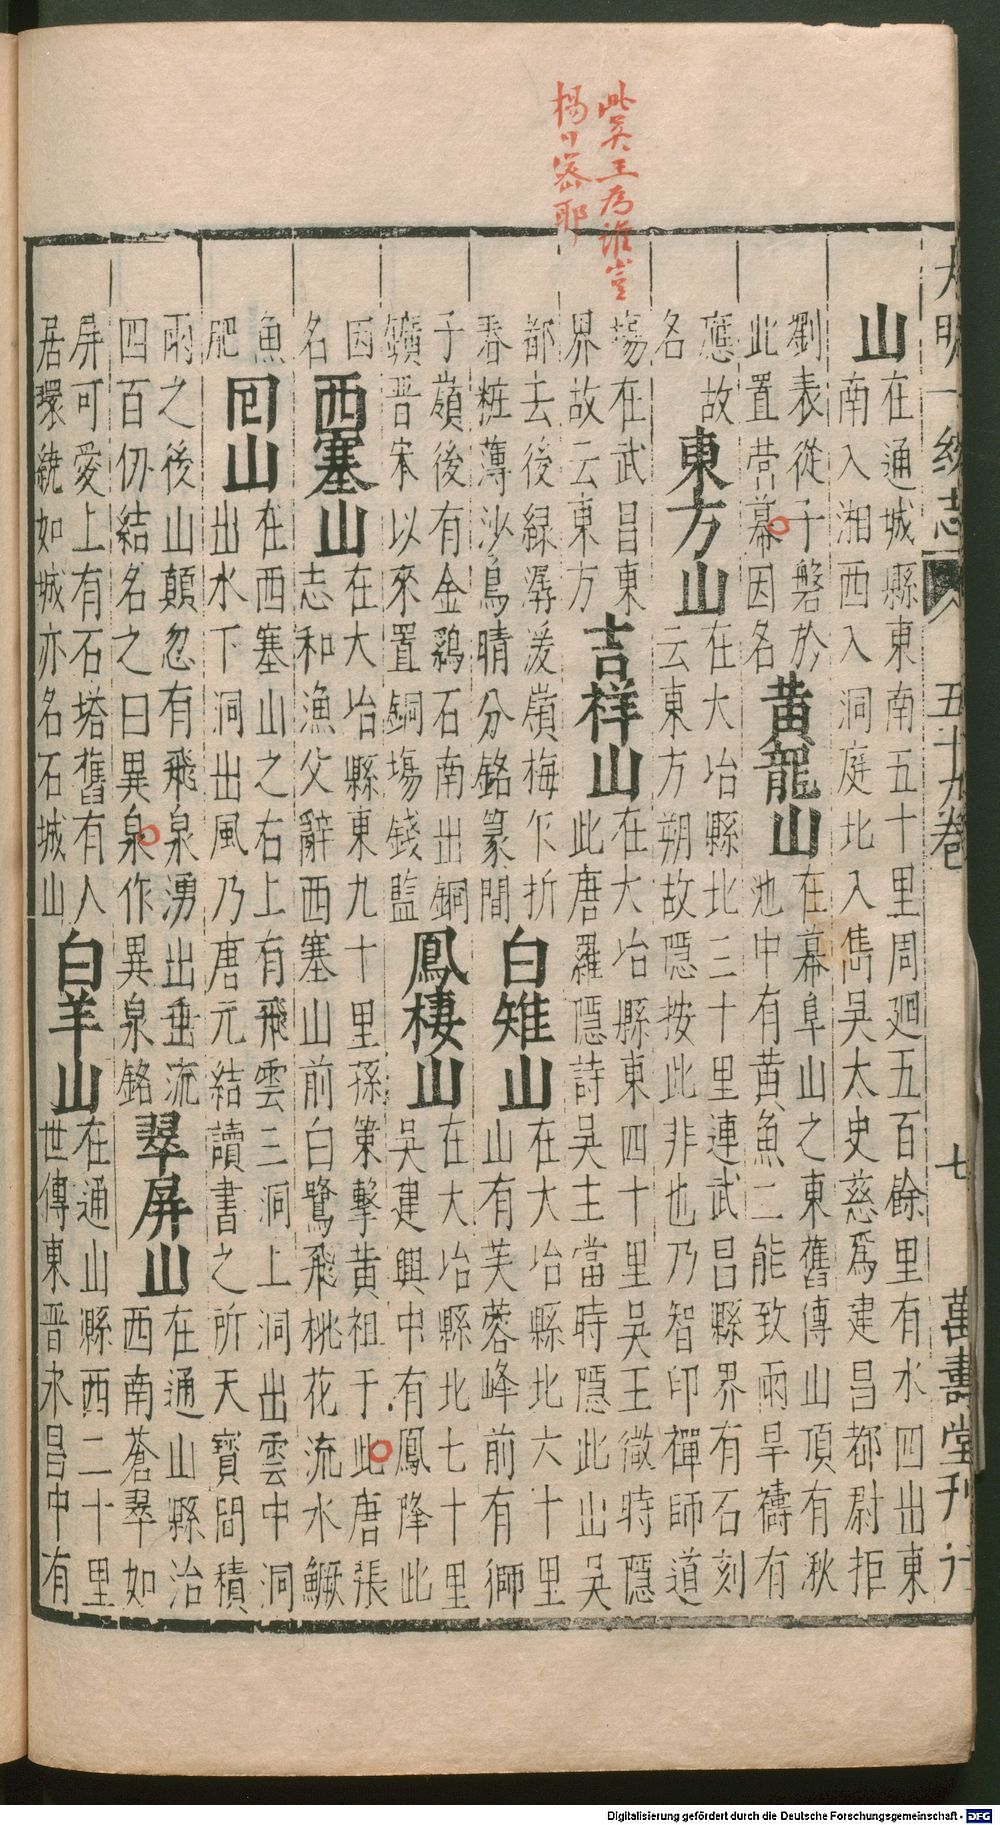 此吳王為誰豈
楊行密耶
大明一統志 五十九卷 七 萬壽堂刊行
山
在通城縣東南五十里周廻五百餘里有水四出東
南入湘西入洞庭北入雋吳太史慈爲建昌都尉拒
劉表從子磐於
此置營幕因名
黃龍山
在幕阜山之東舊傳山頂有湫
池中有黃魚二能致雨旱禱有
應故
名
東方山
在大冶縣北三十里連武昌縣界有石刻
云東方朔故隱按此非也乃智印禪師道
場在武昌東
界故云東方
吉祥山
在大冶縣東四十里吳王微時隱
此唐羅隱詩吳主當時隱此山吳
都去後緑潺湲嶺梅乍折
香粧薄沙鳥晴分銘篆間
白雉山
在大冶縣北六十里
山有芙蓉峰前有獅
子嶺後有金鷄石南出銅
鑛晋宋以來置銅場錢監
鳳棲山
在大冶縣北七十里
吳建興中有鳳降此
因
名
西塞山
在大冶縣東九十里孫策擊黃祖于此唐張
志和漁父辭西塞山前白鷺飛桃花流水鱖
魚
肥
回山
在西塞山之右上有飛雲三洞上洞出雲中洞
出水下洞出風乃唐元結讀書之所天寶間積
雨之後山顛忽有飛泉湧出垂流
四百仞結名之曰異泉作異泉銘
翠屏山
在通山縣治
西南蒼翠如
屏可愛上有石塔舊有人
居環繞如城亦名石城山
白羊山
在通山縣西二十里
世傳東晋永昌中有
Digitalisierung gefördert durch die Deutsche Forschungsgemeinschaft - DFG